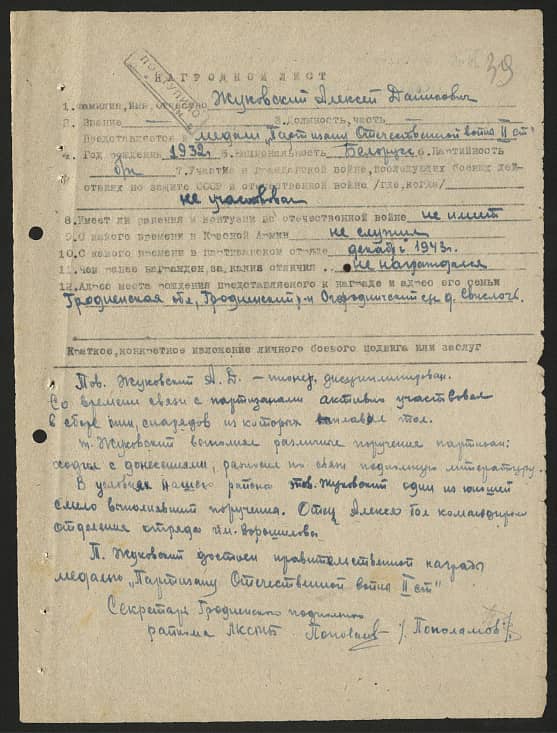 39
ПОСТУПИЛО
НАГРАДНОЙ ЛИСТ
1. Фамилия, имя, отчество Жуковский Алексей Данилович
2. Звание 3. Должность, часть
Представляется к медали „Партизану Отечественной войны II ст"
4. Год рождения 1932г 5. Национальность Белорус 6. Партийность
б/п 7. Участие в гражданской войне, последующих боевых дей-
ствиях по защите СССР и отечественной войне /где, когда/
не участвовал
8. Имеет ли ранения и контузии в отечественной войне не имеет
9. С какого времени в Красной Армии не служил
10. С какого времени в партизанском отряде декабрь 1943г.
11. Чем ранее награжден, за какие отличия . . не награждался
12. Адрес места рождения представляемого к награде и адрес его семьи
Гродненская обл, Гродненский р-н д. Свислочь.
Краткое, конкретное изложение личного боевого подвига или заслуг
Тов. Жуковский А. Д. – пионер, дисциплинирован.
Со времени связи с партизанами активно участвовал
в сборе мин, снарядов из которых выплавлял тол.
т. Жуковский выполнял различные поручения партизан:
ходил с донесениями, разносил по связи подпольную литературу.
В условиях нашего района тов. Жуковский один из юношей
смело выполнявший поручения. Отец Алексея был командиром
отделения отряда им. Ворошилова.
П. Жуковский достоин правительственной награды
медалью „Партизану Отечественной войны II ст"
Секретарь Гродненского подпольного
райкома ЛКСМБ